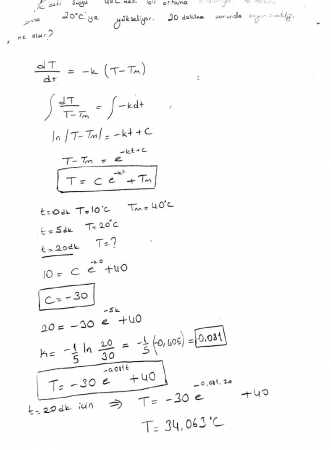 deki suyu 40°C deki bir ortama
20°C'ye yükseliyor. 20 dakika sonunda
ne olur?
dT/dt = -k (T-Tm)
∫ dT/(T-Tm) = ∫ -kdt
ln|T-Tm| = -kt+c
T-Tm = e^(-kt+c)
T = C e^(-kt) + Tm
t=0dk T=10°C Tm=40°C
t=5dk T=20°C
t=20dk T=?
10 = C e^(-k.0) +40
C=-30
20 = -30 e^(-5k) +40
k = -1/5 ln 20/30 = -1/5 (-0,405) = 0.081
T = -30 e^(-0.081t) +40
t=20dk icin ⇒ T = -30 e^(-0,081.20) +40
T= 34,063°C